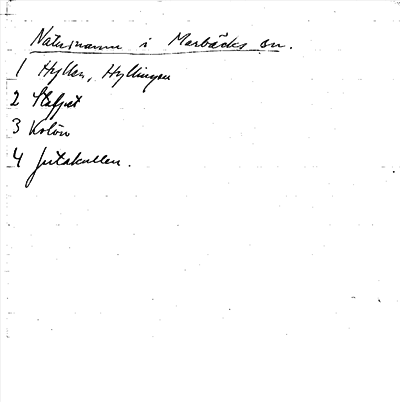 Naturnamn i Marbäcks sn.
1 Hyllen, Hyllingen
2 Stafset
3 Kolön
4 Jutakullen.